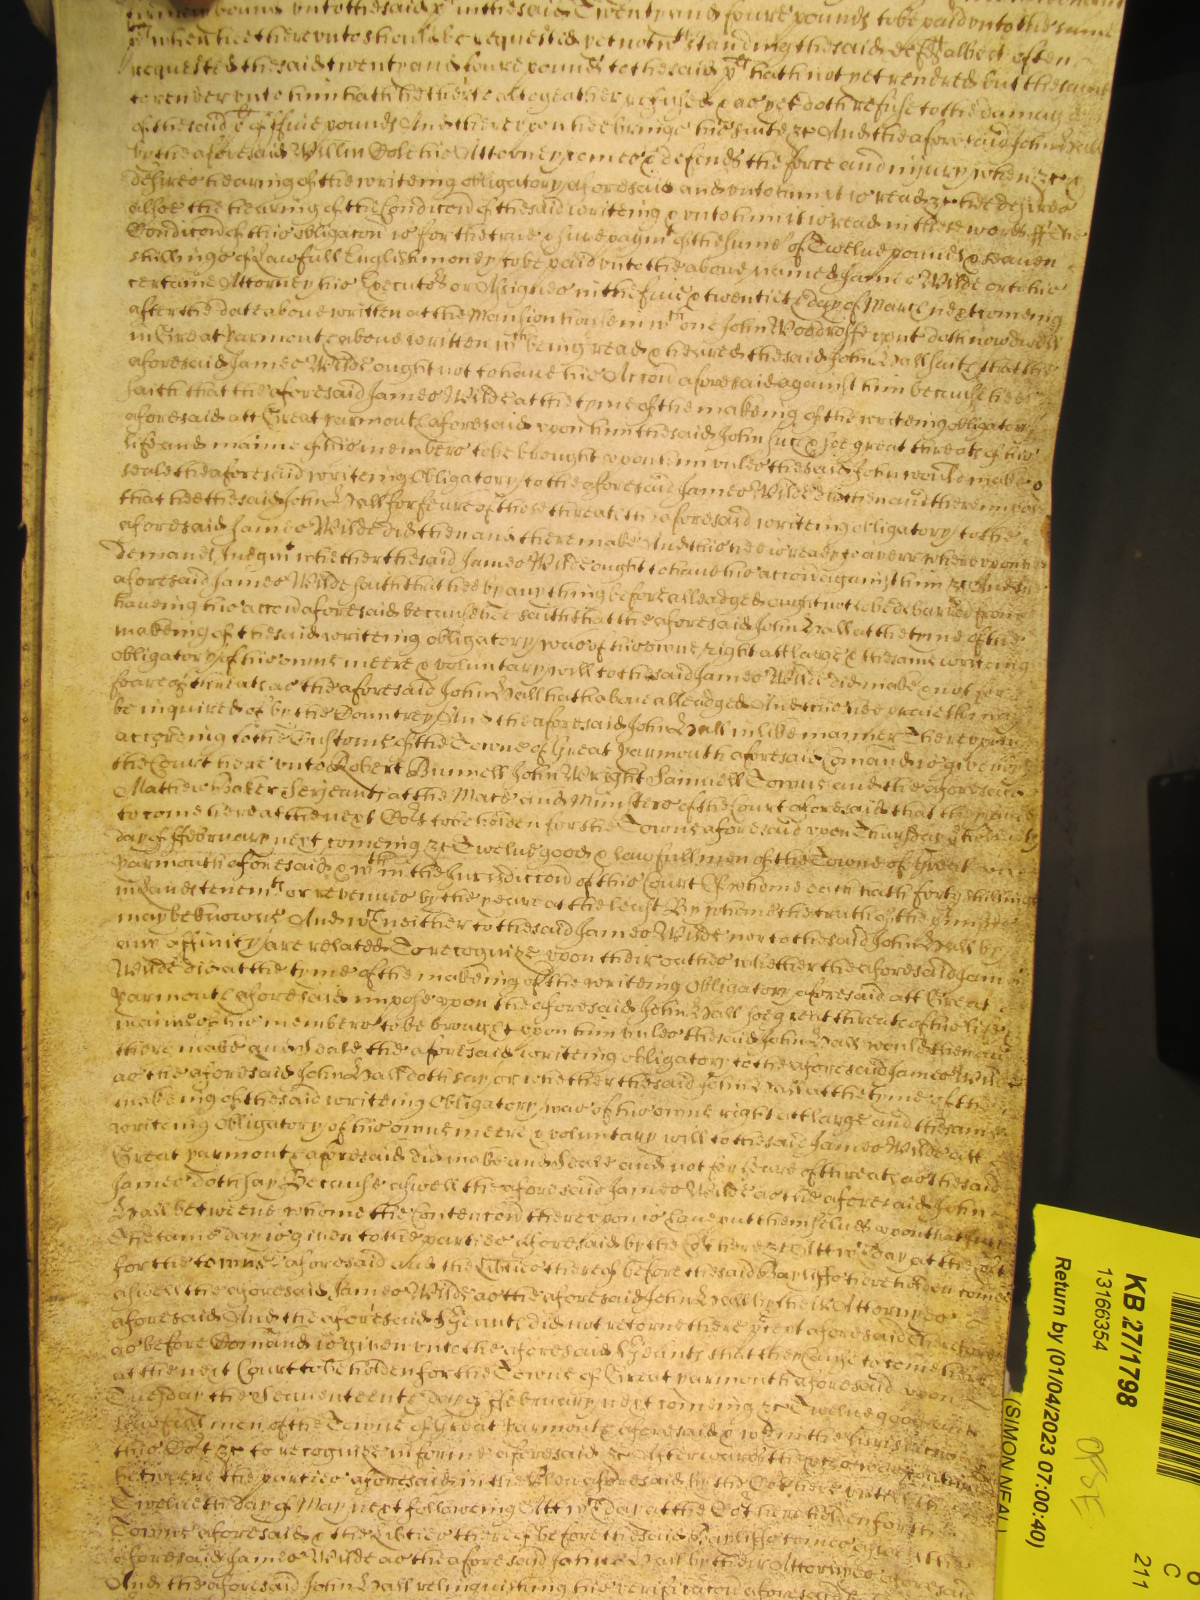 unto the said in the said Twenty and foure pounds to be paid unto the same
when hee thereunto should be requested yet notwthstanding the said deft albeit often
requested the said twenty and foure pounds to the said hath not yet rendred but the same
to render unto him hath hitherto altogeather refused & as yet doth refuse to the damage
of the said of ffive pounds And thereupon hee brings his suite &c And the aforesaid John Hall
by the aforesaid Willm Cole his Attorney comes & defends the force and injury when &c &
desires hearing of the writeing obligatory aforesaid and unto him it is read &c hee desires
alsoe the heareing of the Condicon of the said writeing & unto him it is read in these words The
Condicon of this obligacon is for the true & sure paymt of the sume of Twelve pounds & seaven
shillings of Lawfull English money to be paid unto the above named James Wilde or to his
certaine Attorney his Executors or Assignes in the five & twentieth day of March next comeing
after the date above written at the Mansion house in wch one John Woodroffe now dwell
in Great Yarmouth above written wch being read & heard the said John Hall saith that the
aforesaid James Wilde ought not to have his Accon aforesaid against him because hee
saith that the aforesaid James Wilde at the tyme of the makeing of the writeing obligatory
aforesaid att Great Yarmouth aforesaid upon him the said John such & soe great threats of his
life and maime of his members to be brought upon him unles the said John would make &
seale the aforesaid writeing Obligatory to the aforesaid James Wilde did then and there impose
that hee the said John Hall for feare of those threats the aforesaid writeing obligatory to the
aforesaid James Wilde did then and there make And this hee is ready to averr whereupon hee
demands Judgmt whether the said James Wilde ought to have his accon against him &c And the
aforesaid James Wilde saith that hee by any thing before alleadged ought not to be debarred from
haveing his accon aforesaid because hee saith that the aforesaid John Hall at the tyme of the
makeing of the said writeing obligatory was of his owne right att large & the same writeing
obligatory of his owne meere & voluntary will to the said James Wilde did make & not for
feare of threats as the aforesaid John Hall hath above alleadged And this hee prayeth may
be inquired of by the Countrey And the aforesaid John Hall in like manner Thereupon
according to the Custome of the Towne of Great Yarmouth aforesaid Comand is given by
the Court here unto Robert Bunnell John Wright Samuell Towne and the aforesaid
Mathew Baker Serjeants at the Mace and Ministers of the Court aforesaid that they cause
to come here at the next Cort to be holden for the Towne aforesaid upon
day of ffebruary next comeing &c Twelve good & lawfull men of the Towne of Great
Yarmouth aforesaid & wthin the Jurisdiccon of this Court Of whome each hath forty shillings
in Lands tenemts or revenues by the yeare at the least By whome the truth of the premisses
may be knowne And wch neither to the said James Wilde nor to the said John Hall by
any affinity are related To recognize upon their oathes whether the aforesaid James
Wilde did at the tyme of the makeing of the writeing Obligatory aforesaid att Great
Yarmouth aforesaid impose upon the aforesaid John Hall soe great threats of his life &
maime of his members to be brought upon him unles the said John Hall would then and
there make and Seale the aforesaid writeing obligatory to the aforesaid James Wilde
as the aforesaid John Hall doth say or whether the said John Hall at the tyme of the
makeing of the said writeing Obligatory was of his owne right att large and the same
writeing Obligatory of his owne meere & voluntary will to the said James Wilde att
Great Yarmouth aforesaid did make and Seale and not for feare of threats as the said
James doth say Because aswell the aforesaid James Wilde as the aforesaid John
Hall betweene whome the Contencon thereupon is have put themselves upon that Jury
The same day is given to the parties aforesaid by the Cort here &c Att wch day at the Cort
for the towne aforesaid and the Liberties thereof before the said Bayliffs here holden comes
aswell the aforesaid James Wilde as the aforesaid John Hall by their Attorneyes
aforesaid And the aforesaid Serjeants did not retorne there aforesaid Therefore
as before Comand is given unto the aforesaid Serjeants that they cause to come here
at the next Court to be holden for the Towne of Great Yarmouth aforesaid upon
Tuesday the Seaventeenth day of ffebruary next comeing &c Twelve good and
lawfull men of the Towne of Great Yarmouth aforesaid & wthin the Jurisdiccon of
this Cort &c to recognize in forme aforesaid &c Afterwards the proces was continued
betweene the parties aforesaid in the Plea aforesaid by the Cort here untill the
Twelueth day of May next followeing Att wch day at the Cort here holden for the
Towne aforesaid & the Liberties thereof before the said Bayliffs comes aswell the
aforesaid James Wilde as the aforesaid John Hall by their Attorneyes aforesaid
And the aforesaid John Hall relinquishing his verificacon aforesaid
KB 27/1798
13166354
Return by (01/04/2023 07:00:40)
(SIMON NEAL)
C
211